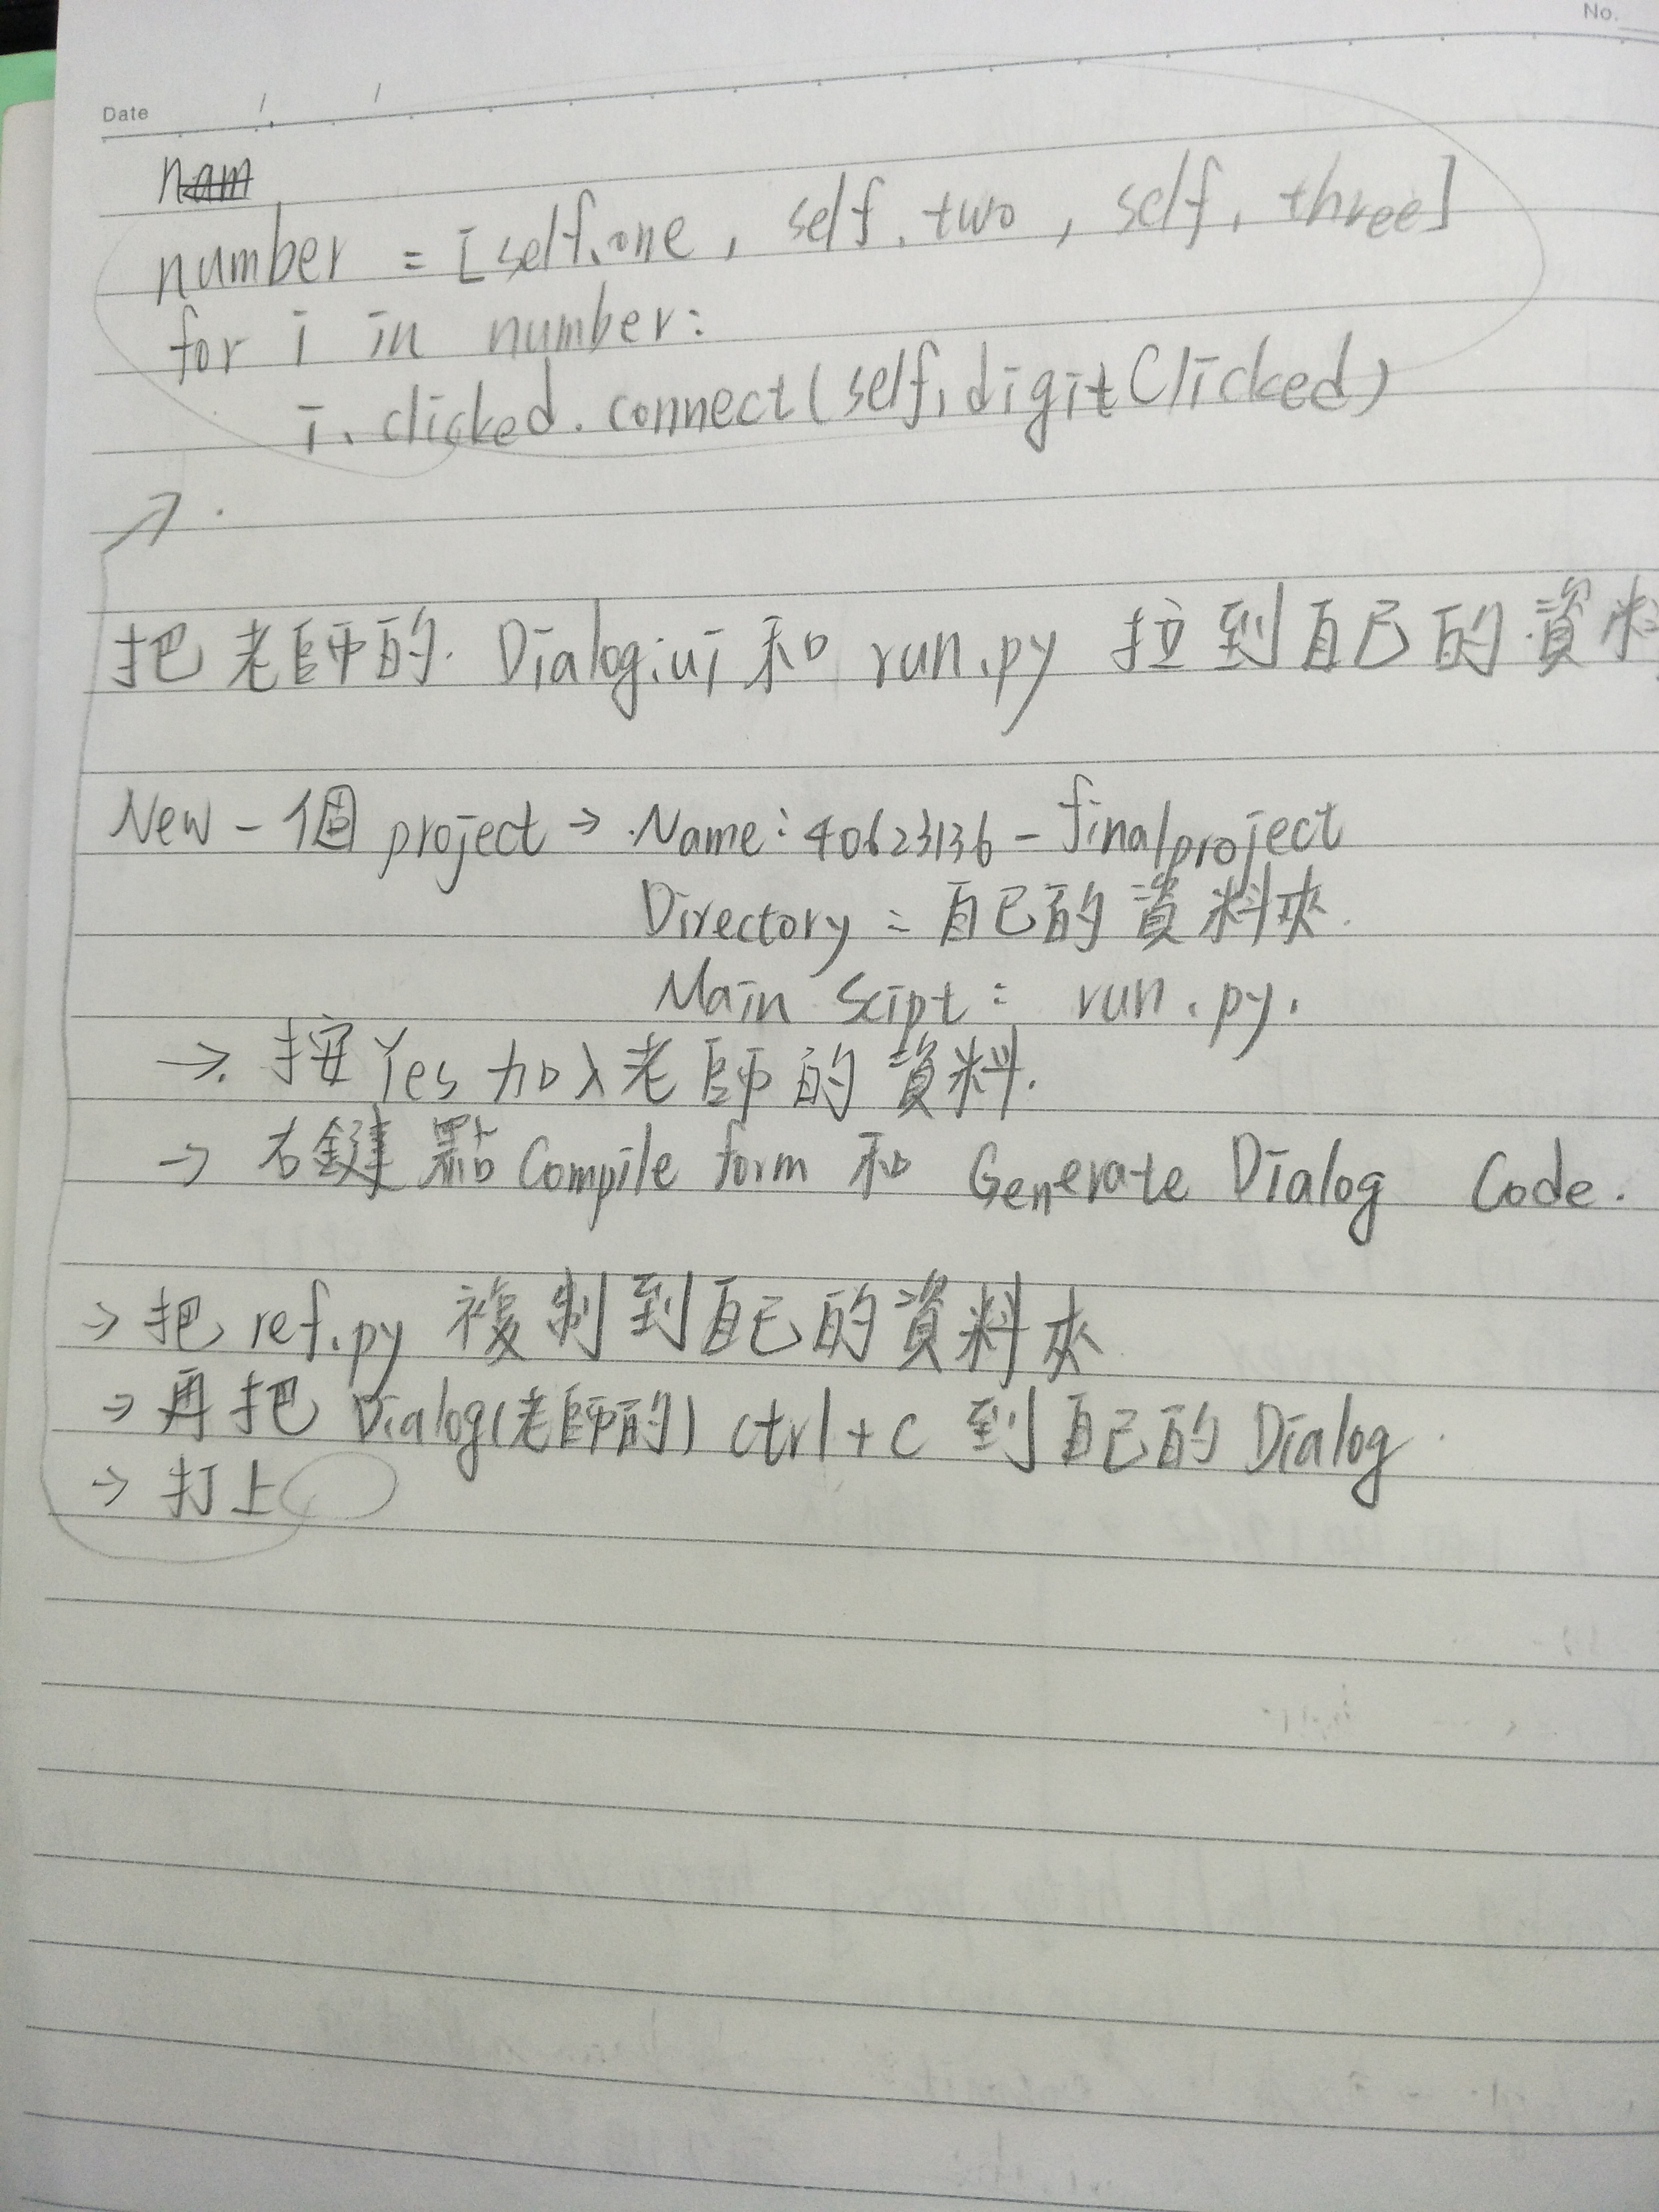 No.
Date
number = [self.one, self.two, self.three]
for i in number:
i.clicked.connect(self.digitClicked)
把老師的 Dialog.ui 和 run.py 拉到自己的資料
New 一個 project → Name: 40623136-finalproject
Directory = 自己的資料夾.
Main Scipt: run.py.
→ 按 Yes 加入老師的資料.
→ 右鍵點 Compile form 和 Generate Dialog Code.
→ 把 ref.py 複制到自己的資料夾
→ 再把 Dialog(老師的) ctrl+c 到自己的 Dialog
→ 打上